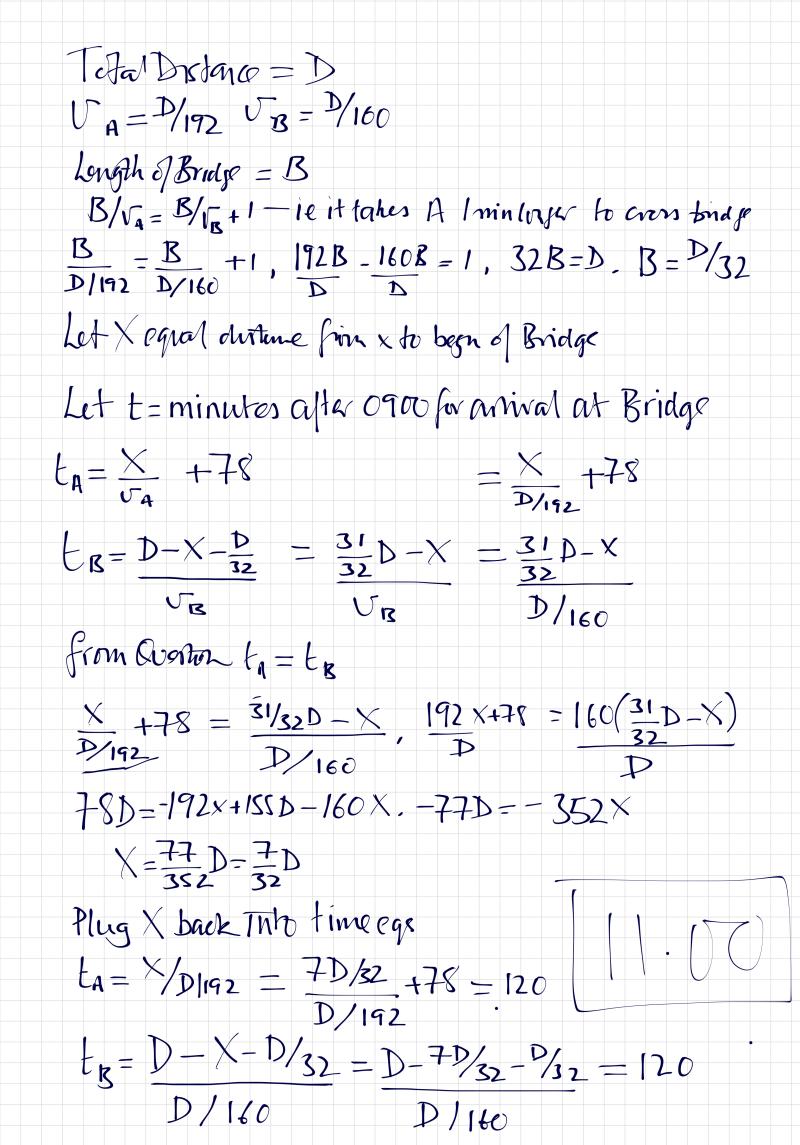 Total Distance = D
υ_A = D/192 υ_B = D/160
Length of Bridge = B
B/υ_A = B/υ_B + 1 — ie it takes A 1 min longer to cross bridge
B/(D/192) = B/(D/160) + 1, 192B/D - 160B/D = 1, 32B = D. B = D/32
Let X equal distance from x to begn of Bridge
Let t = minutes after 0900 for arrival at Bridge
t_A = X/υ_A + 78 = X/(D/192) + 78
t_B = (D - X - D/32)/υ_B = (31/32 D - X)/υ_B = (31/32 D - X)/(D/160)
from Question t_A = t_B
X/(D/192) + 78 = (31/32D - X)/(D/160), 192/D X + 78 = 160(31/32 D - X)/D
78D = -192x + 155D - 160X. -77D = - 352X
X = 77/352 D = 7/32 D
Plug X back into time eqs
t_A = X/D/192 = (7D/32)/(D/192) + 78 = 120
11.00
t_B = (D - X - D/32)/(D/160) = (D - 7D/32 - D/32)/(D/160) = 120